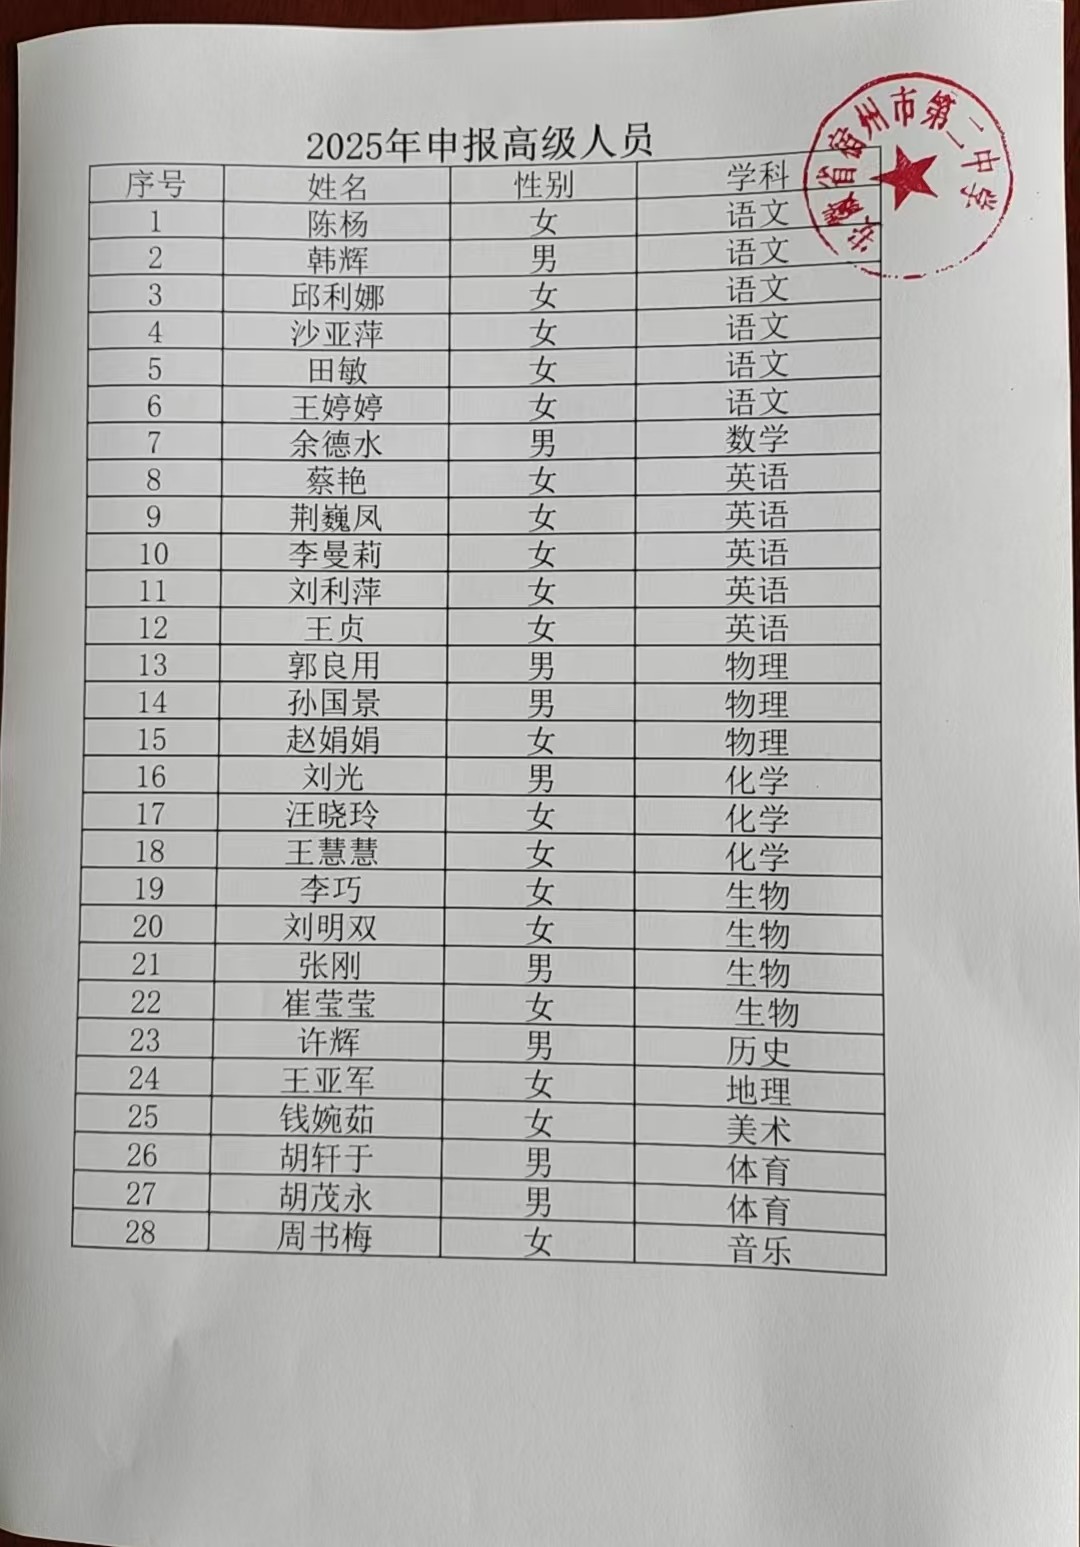 2025年申报高级人员
安徽省宿州市第二中学
序号 姓名 性别 学科
1 陈杨 女 语文
2 韩辉 男 语文
3 邱利娜 女 语文
4 沙亚萍 女 语文
5 田敏 女 语文
6 王婷婷 女 语文
7 余德水 男 数学
8 蔡艳 女 英语
9 荆巍凤 女 英语
10 李曼莉 女 英语
11 刘利萍 女 英语
12 王贞 女 英语
13 郭良用 男 物理
14 孙国景 男 物理
15 赵娟娟 女 物理
16 刘光 男 化学
17 汪晓玲 女 化学
18 王慧慧 女 化学
19 李巧 女 生物
20 刘明双 女 生物
21 张刚 男 生物
22 崔莹莹 女 生物
23 许辉 男 历史
24 王亚军 女 地理
25 钱婉茹 女 美术
26 胡轩于 男 体育
27 胡茂永 男 体育
28 周书梅 女 音乐